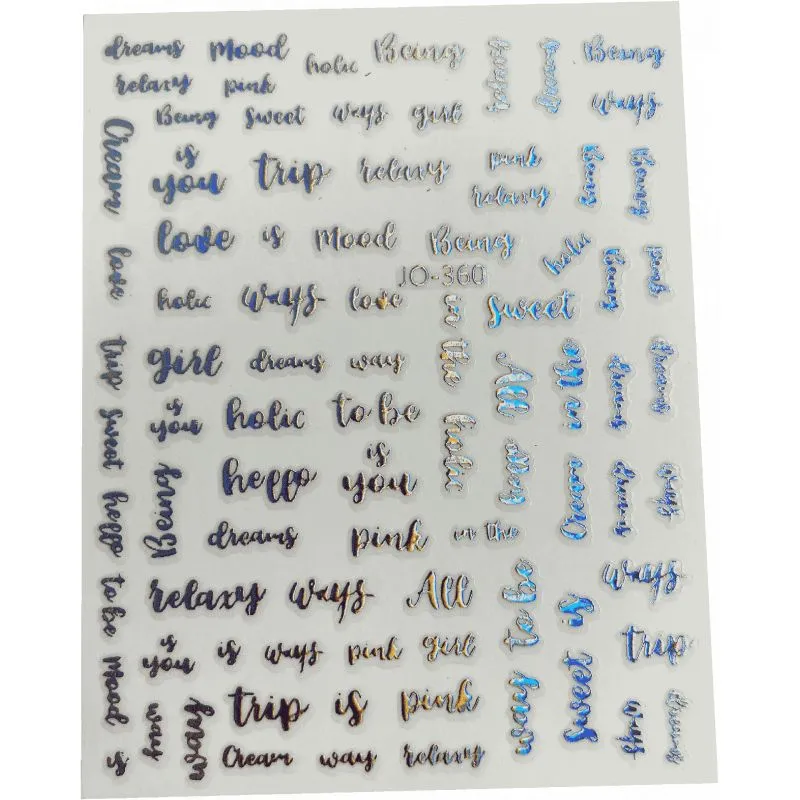 dreams Mood holic Being
relaxy pink
Being Sweet ways girl
Being
ways
Cream
is
you trip relaxy pink
relaxy
Being
Being
love
love is Mood Being
holic
Being
pink
JO-360
holic ways love
in the
Sweet
trip
girl dreams way
All
dreams
dreams
sweet
is
you holic to be
holic
hello
Being
hello is
you
Cream
dreams
ways
dreams pink in the
to be
relaxy ways All
to be
is
ways
Mood
is
you is ways pink girl
Sweet
trip
is
way
trip is pink
ways
dreams
Cream way relaxy